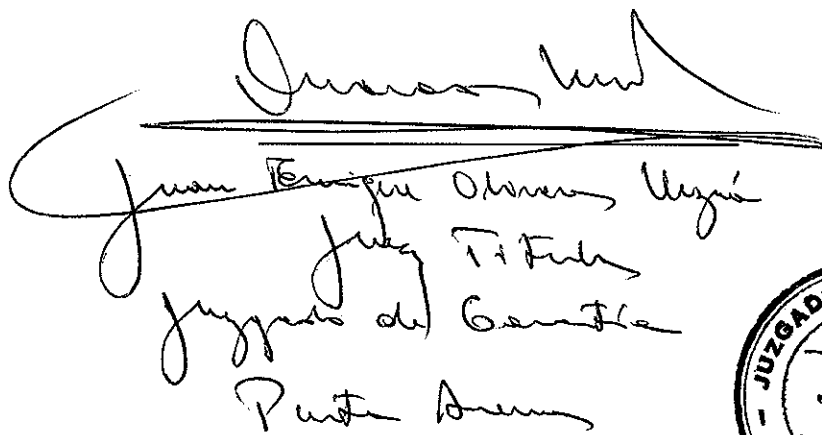 Juan Enrique Olivares Urzúa
Juez Titular
Juzgado de Garantía
Punta Arenas
JUZGAD